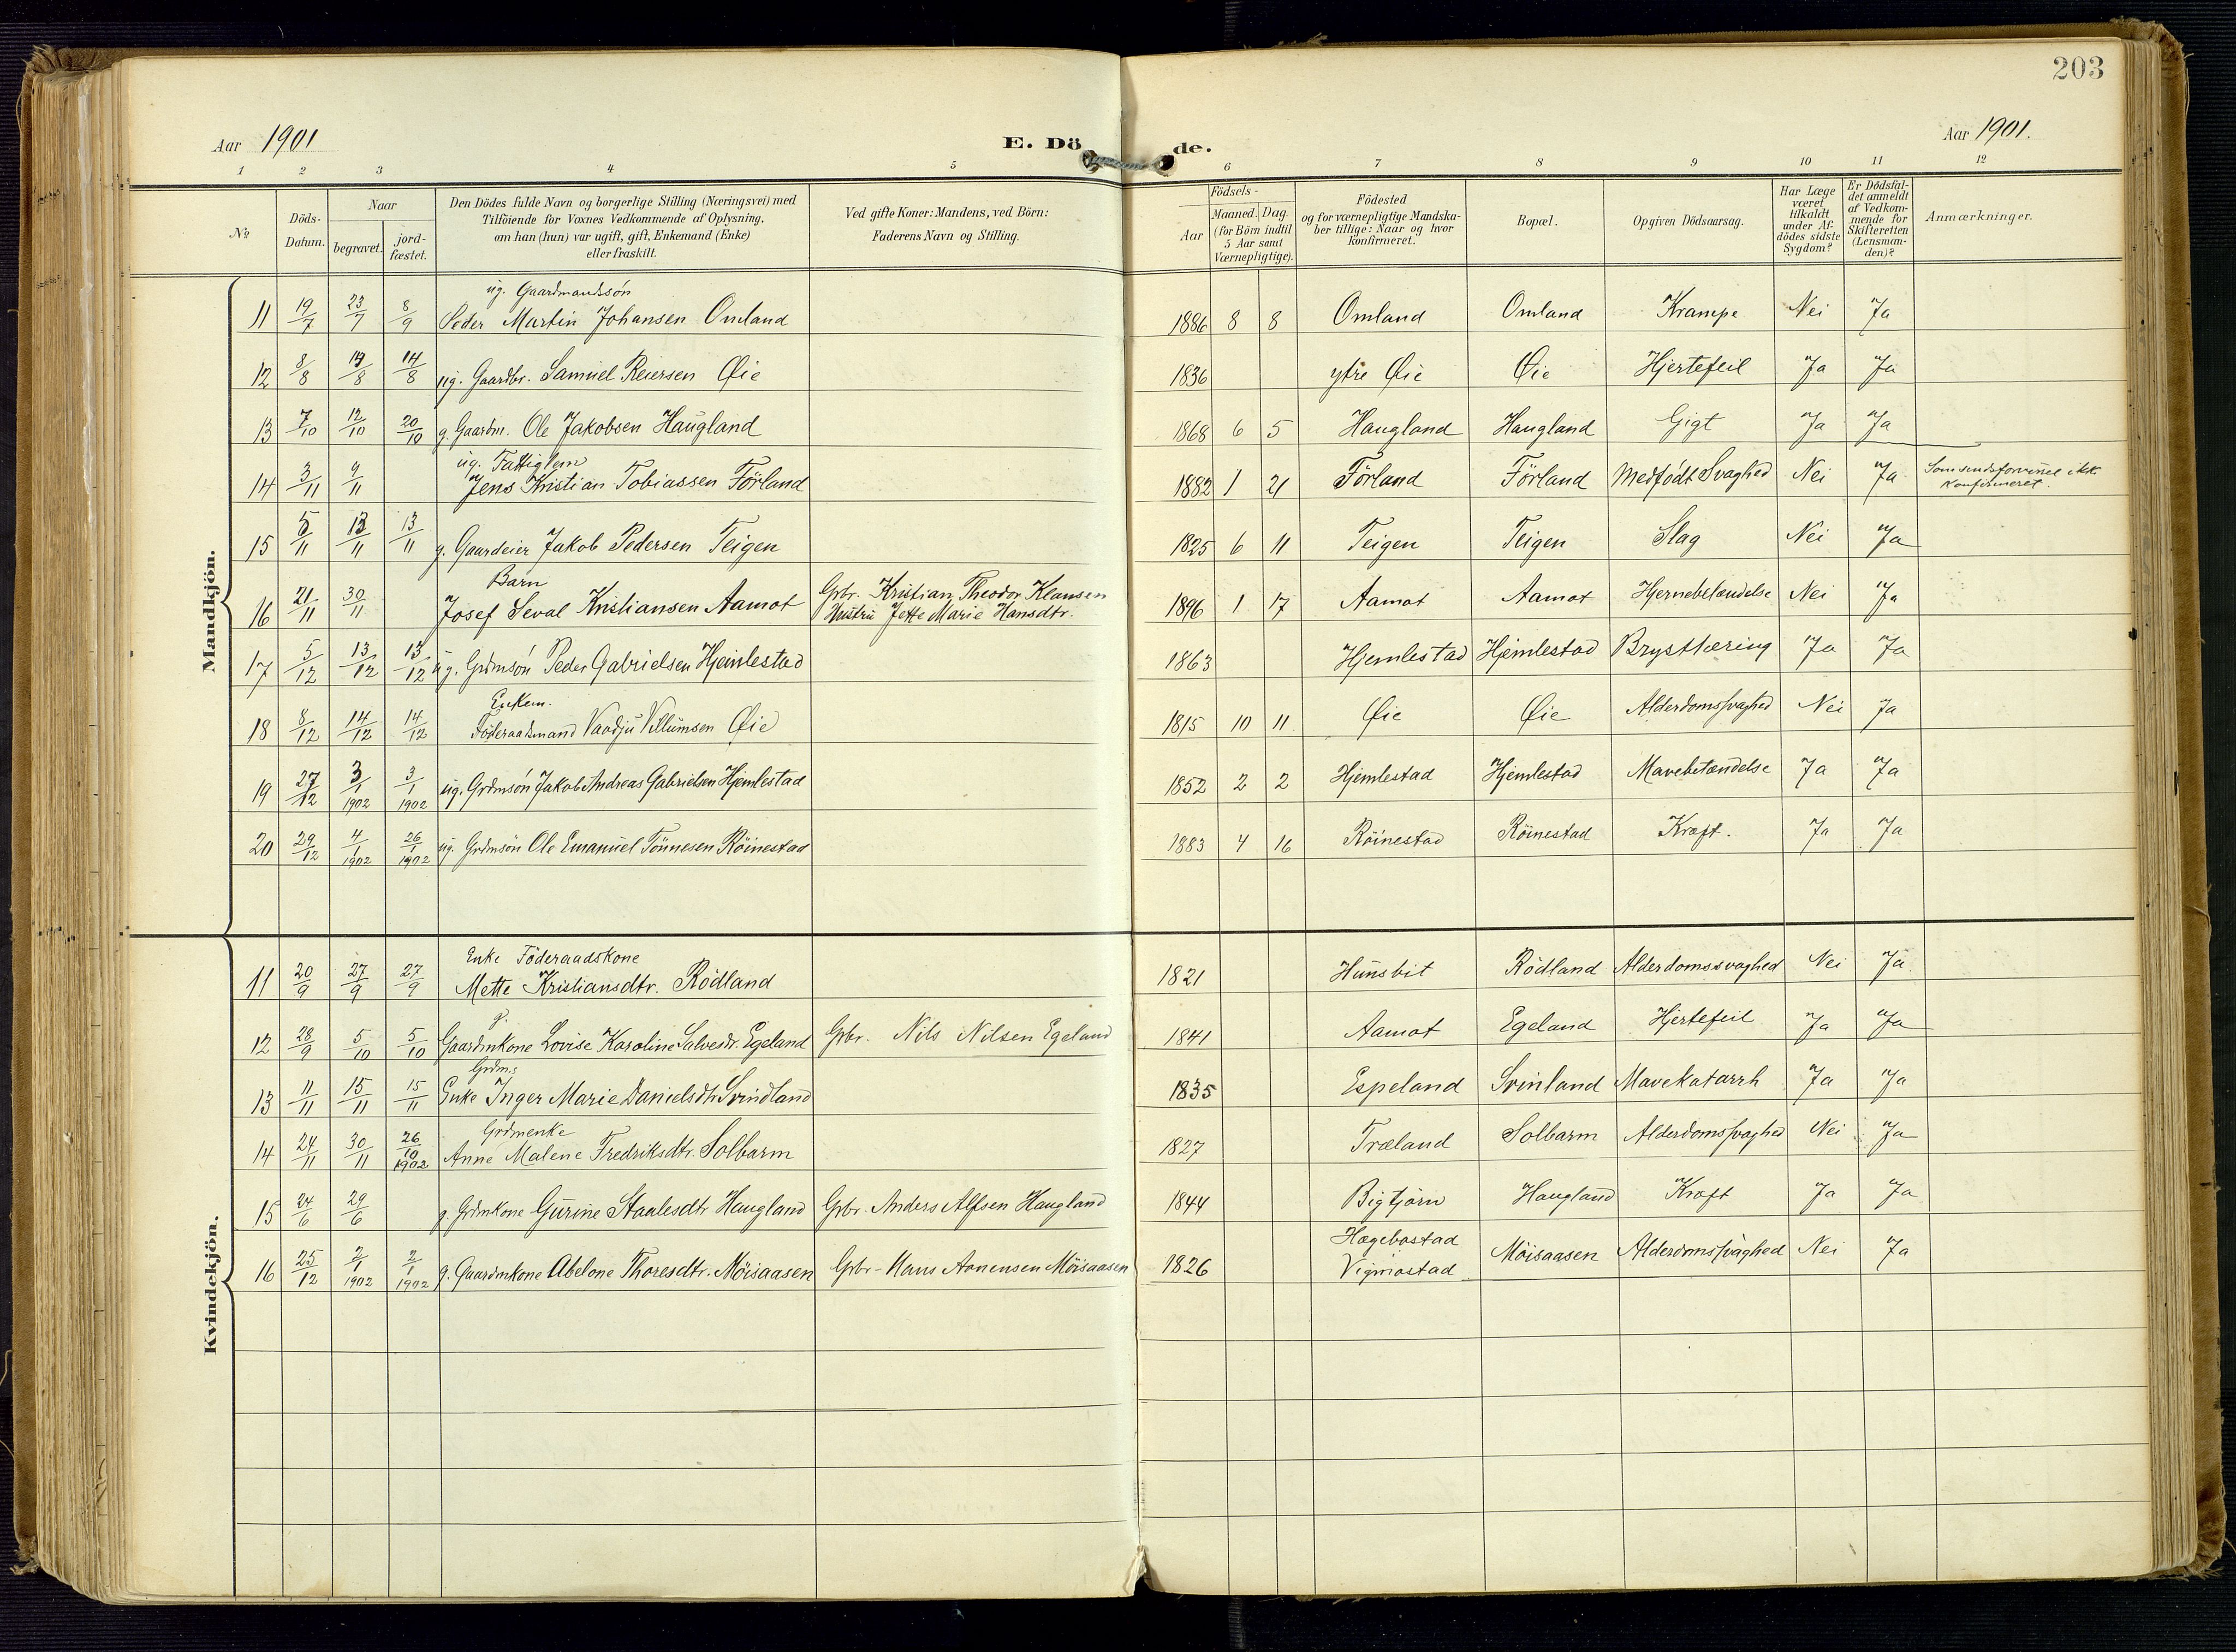 203
Aar 1901
E. Dö de.
Aar 1901.
1 2 3 4 5 6 7 8 9 10 11 12
No
Döds-Datum.
Naar
begravet.
jord-fæstet.
Den Dödes fulde Navn og borgerlige Stilling (Næringsvei) med
Tilföiende for Voxnes Vedkommende af Oplysning,
om han (hun) var ugift, gift, Enkemand (Enke)
eller fraskilt.
Ved gifte Koner: Mandens, ved Börn:
Faderens Navn og Stilling.
Födsels-
Aar
Maaned. Dag.
(for Börn indtil
5 Aar samt
Værnepligtige).
Födested
og for værnepligtige Mandska-
ber tillige: Naar og hvor
konfirmeret.
Bopæl.
Opgiven Dödsaarsag.
Har Læge
været
tilkaldt
under Af-
dödes sidste
Sygdom?
Er Dödsfal-
det anmeldt
af Vedkom-
mende for
Skifteretten
(Lensman-
den)?
Anmærkninger.
Mandkjön.
ug. Gaardmandssön
11 19/7 23/7 8/9 Peder Martin Johansen Omland 1886 8 8 Omland Omland Krampe Nei Ja
12 8/8 14/8 ug. Gaardbr. Samuel Reiersen Øie 1836 ytre Øie Øie Hjertefeil Ja Ja
13 7/10 12/10 20/10 g. Gaardm. Ole Jakobsen Haugland 1868 6 5 Haugland Haugland Gigt Ja Ja
ug. Fattiglem
14 3/11 9/11 Jens Kristian Tobiassen Förland 1882 1 21 Förland Förland Medfödt Svaghed Nei Ja Som sindsforvirret ikke
Konfirmeret.
15 5/11 13/11 13/11 g. Gaardeier Jakob Pedersen Teigen 1825 6 11 Teigen Teigen Slag Nei Ja
Barn
16 21/11 30/11 Josef Seval Kristiansen Aamot Gbr. Kristian Theodor Klausen
Hustru Jette Marie Hansdtr. 1896 1 17 Aamot Aamot Hjernebetændelse Nei Ja
17 5/12 13/12 13/12 ug. Grdmsön Peder Gabrielsen Hjemlestad 1863 Hjemlestad Hjemlestad Brysttæring Ja Ja
Enkem.
18 8/12 14/12 14/12 Föderaadsmand Vaadju Villumsen Øie 1815 10 11 Øie Øie Alderdomssvaghed Nei Ja
19 27/12 3/1 1902 3/1 1902 ug. Grdmsön Jakob Andreas Gabrielsen Hjemlestad 1852 2 2 Hjemlestad Hjemlestad Mavebetændelse Ja Ja
20 29/12 4/1 1902 26/1 1902 ug. Grdmsön Ole Emanuel Tönnesen Röinestad 1883 4 16 Röinestad Röinestad Kræft. Ja Ja
Kvindekjön.
Enke Föderaadskone
11 20/9 27/9 27/9 Mette Kristiansdtr. Rödland 1821 Hunsbit Rödland Alderdomssvaghed Nei Ja
g.
12 28/9 5/10 5/10 Gaardmkone Lovise Karoline Salvesdr. Egeland Gbr. Nils Nilsen Egeland 1841 Aamot Egeland Hjertefeil Ja Ja
Grdm:s
13 11/11 15/11 15/11 Enke Inger Marie Danielsdtr Svindland 1835 Espeland Svinland Mavekatarrh Ja Ja
Grdmenke
14 24/11 30/11 26/10 1902 Anne Malene Fredriksdtr. Solbarm 1827 Træland Solbarm Alderdomssvaghed Nei Ja
15 24/6 29/6 g. Grdmkone Gurine Staalesdtr Haugland Gbr. Anders Alfsen Haugland 1844 Bigtjörn Haugland Kræft Ja Ja
16 25/12 2/1 1902 2/1 1902 g. Gaardmkone Abelone Thoresdtr. Möisaasen Gbr. Hans Aanensen Möisaasen 1826 Hægebostad
Vigmostad Möisaasen Alderdomssvaghed Nei Ja